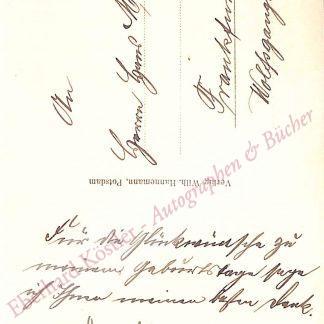 An
Herrn Hans
Frankfurt
Wolfsgang
Verlag Wilh. Hannemann, Potsdam
Für die Glückwünsche zu
meinem Geburtstage sage
ich Ihnen meinen besten Dank.
Eberhard Köstler - Autographen & Bücher